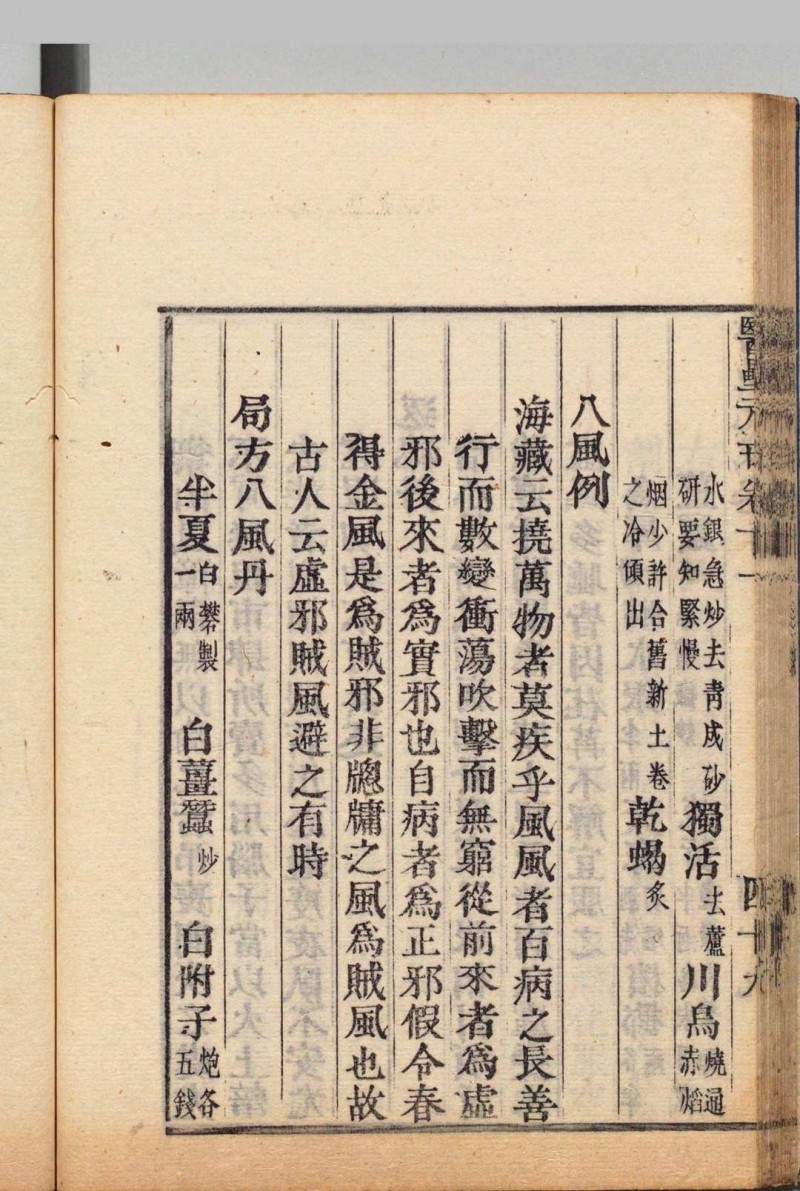 醫壘元戎卷十一 四十九
水銀急炒去青成砂研要知緊慢獨活去蘆川烏燒通赤熖
烟少許合舊新土卷之冷傾出乾蝎炙
八風例
海藏云撓萬物者莫疾乎風風者百病之長善
行而數變衝蕩吹擊而無窮從前來者為虛
邪後來者為實邪也自病者為正邪假令春
得金風是為賊邪非牕牗之風為賊風也故
古人云虛邪賊風避之有時
局方八風丹
半夏白礬製一兩 白薑蠶炒 白附子炮各五錢